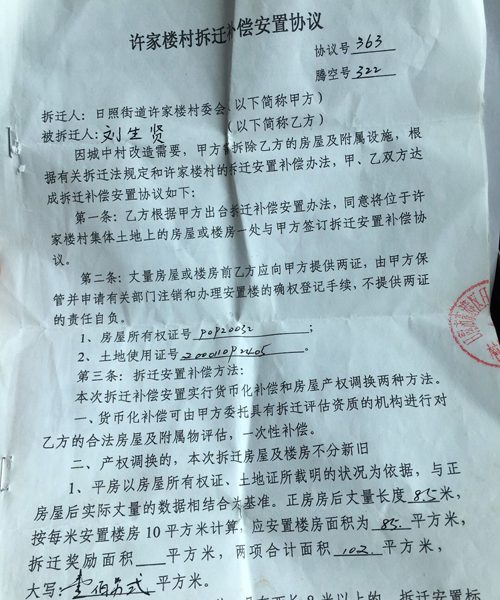 许家楼村拆迁补偿安置协议
协议号 363
腾空号 322
拆迁人：日照街道许家楼村委会（以下简称甲方）
被拆迁人：刘生贤 （以下简称乙方）
因城中村改造需要，甲方 拆除乙方的房屋及附属设施，根
据有关拆迁法规定和许家楼村的拆迁安置补偿办法，甲、乙双方达
成拆迁补偿安置协议如下：
第一条：乙方根据甲方出台拆迁安置补偿办法，同意将位于许
家楼村集体土地上的房屋或楼房一处与甲方签订拆迁安置补偿协
议。
第二条：丈量房屋或楼房前乙方应向甲方提供两证，由甲方保
管并申请有关部门注销和办理安置楼的确权登记手续，不提供两证
的责任自负。
1、房屋所有权证号 ；
2、土地使用证号 。
第三条：拆迁安置补偿方法：
本次拆迁补偿安置实行货币化补偿和房屋产权调换两种方法。
一、货币化补偿可由甲方委托具有拆迁评估资质的机构进行对
乙方的合法房屋及附属物评估，一次性补偿。
二、产权调换的，本次拆迁房屋及楼房不分新旧
1、平房以房屋所有权证、土地证所载明的状况为依据，与正
房屋后实际丈量的数据相结合为基准。正房房后丈量长度 8.5 米，
按每米安置楼房 10 平方米计算，应安置楼房面积为 85 平方米，
拆迁奖励面积____平方米，两项合计面积 102 平方米，
大写：壹佰 平方米。
米以上的，拆迁安置标